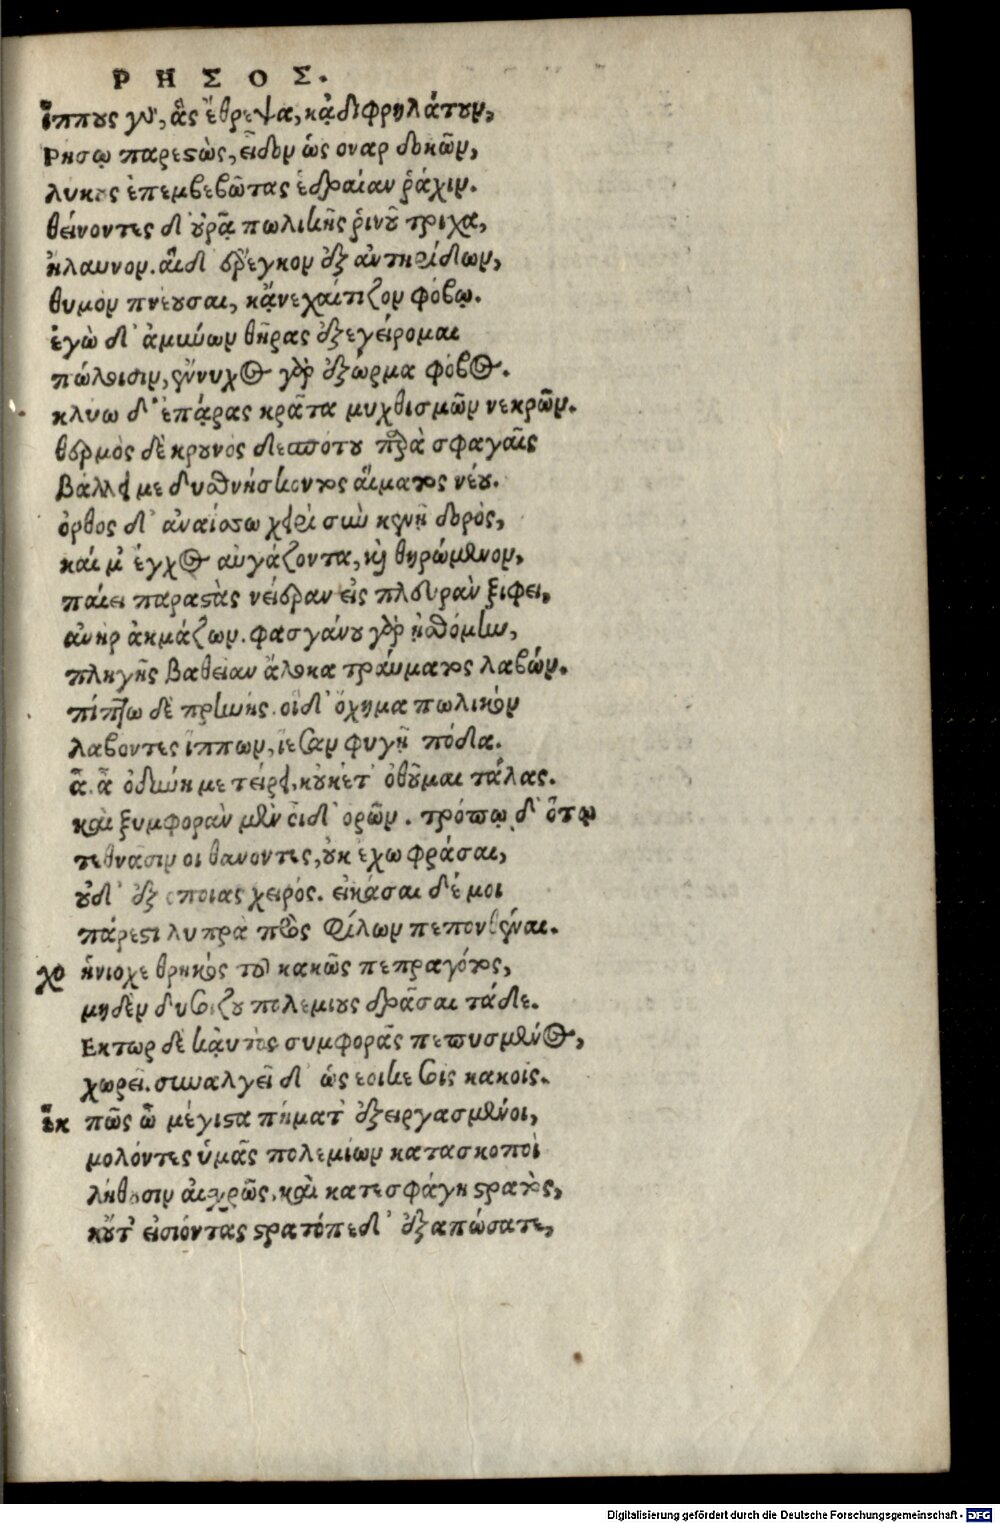 ΡΗΣΟΣ.
ἵππους γὰρ, ἃς ἔθρεψα, κᾀδιφρηλάτουν,
Ρησῳ παρεστὼς, εἶδον ὡς οναρ δοκῶν,
λυκους ἐπεμβεβῶτας ἑδραίαν ῥάχιν.
θείνοντες δ' οὐρᾷ πωλικῆς ῥινοῦ τριχα,
ἤλαυνον. αἱ δ' ἔρεγκον ἐξ αντηρίδων,
θυμὸν πνέουσαι, κᾀνεχαίτιζον φόβῳ.
ἐγὼ δ' ἀμύνων θῆρας ἐξεγείρομαι
πώλοισιν, ἔννυχος γὰρ ἐξώρμα φόβος.
κλύω δ' ἐπάρας κρᾶτα μυχθισμῶν νεκρῶν.
θερμὸς δὲ κρουνὸς δεσπότου παρὰ σφαγαῖς
βάλλει με δυσθνήσκοντος αἵματος νέου.
ὀρθος δ' αναίσσω χειρὶ σὺν κενῇ δορὸς,
καί μ' ἔγχος αὐγάζοντα, καὶ θηρώμενον,
παίει παραστὰς νείεραν εἰς πλευρὰν ξιφει,
ανὴρ ἀκμάζων. φασγάνου γὰρ ᾐσθόμην,
πληγῆς βαθεῖαν ἄλοκα τραύματος λαβών.
πίπτω δὲ πρηνής. οἱ δ' ὄχημα πωλικὸν
λαβοντες ἵππων, ἵεσαν φυγῇ πόδα.
ἆ. ἆ ὀδύνη με τείρει, κοὐκέτ' ὀθοῦμαι τάλας.
καὶ ξυμφορὰν μὲν οἶδ' ὁρῶν. τρόπῳ δ' ὅτῳ
τεθνᾶσιν οι θανοντες, οὐκ ἔχω φράσαι,
οὐδ' ἐξ ὁποιας χειρός. εἰκάσαι δέ μοι
πάρεστι λυπρὰ πρὸς φίλων πεπονθέναι.
χο ἡνιοχε θρηκὸς τοῦ κακῶς πεπραγότος,
μηδὲν δυσοιζου πολεμιους δρᾶσαι τάδε.
Εκτωρ δὲ καὐτὸς συμφορᾶς πεπυσμένος,
χωρεῖ. συναλγεῖ δ' ὡς εοικε σοῖς κακοῖς.
ἕκ πῶς ὦ μέγιστα πήματ' ἐξειργασμένοι,
μολόντες ὑμᾶς πολεμίων κατασκοποὶ
λήθουσιν αἰσχρῶς, καὶ κατεσφάγη στρατὸς,
κοὔτ' εἰσιόντας στρατόπεδ' ἐξαπώσατε,
Digitalisierung gefördert durch die Deutsche Forschungsgemeinschaft - DFG